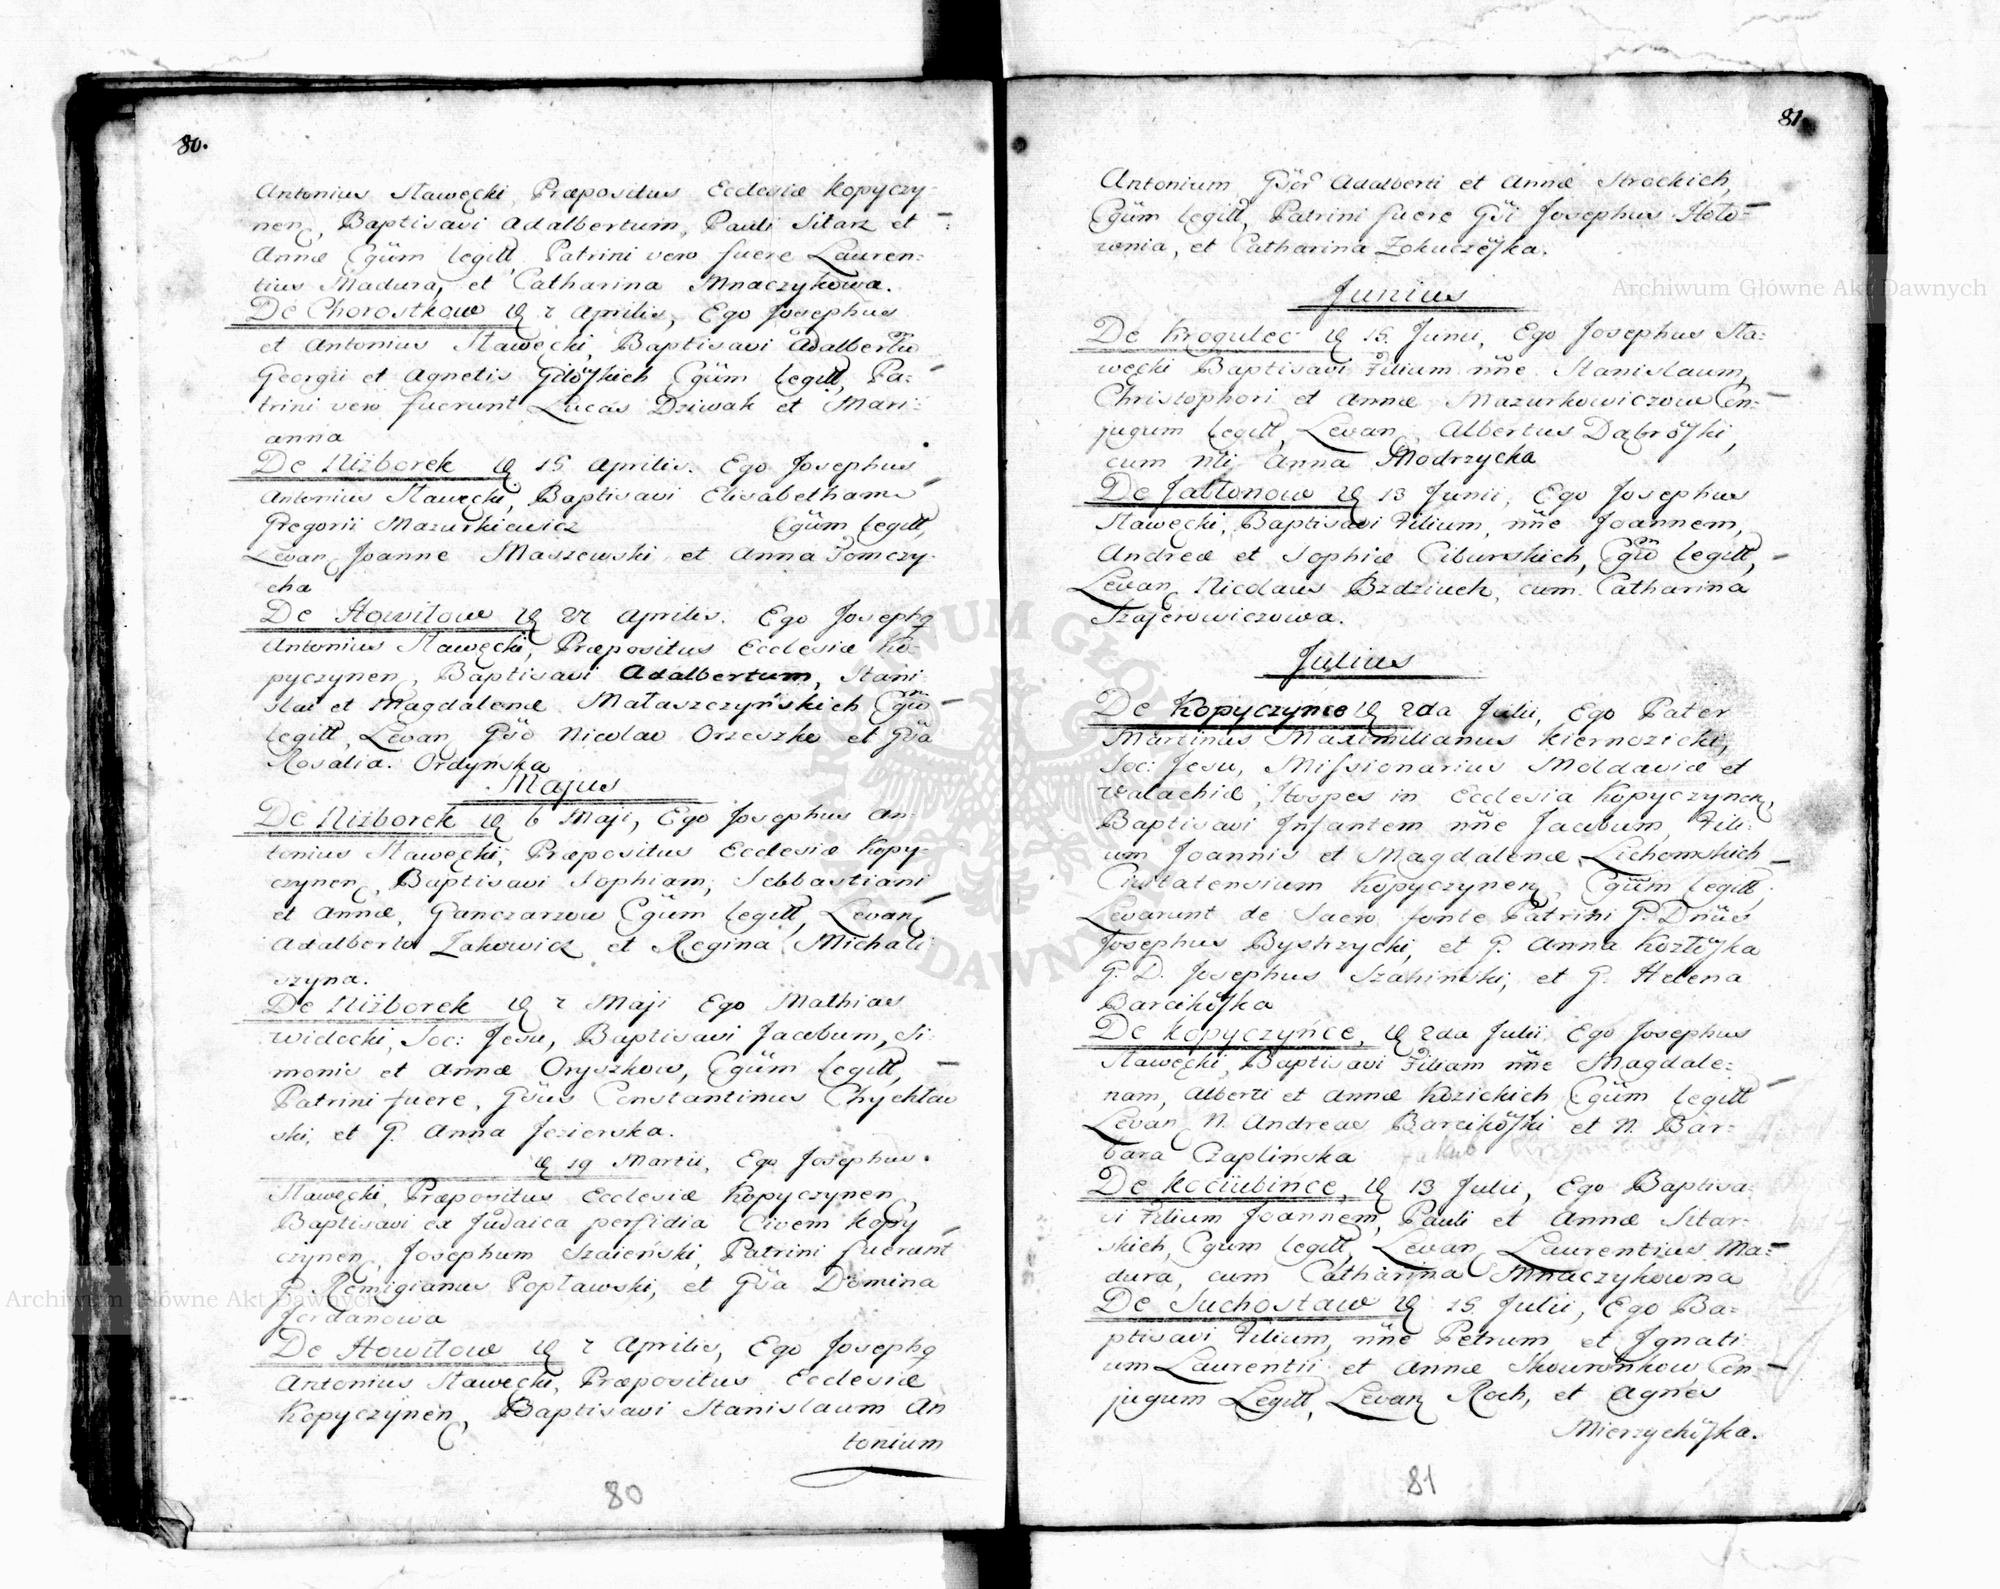 80.
Antonius Stawęcki Præpositus Ecclesiæ Kopyczy-
nen, Baptisavi Adalbertum, Pauli Sitarz et
Annæ Cgüm legitt, Patrini vero fuere Lauren:
tius Madura, et Catharina Mnaczykowa.
De Chorostkow 7 Aprilis, Ego Josephus
et Antonius Stawęcki, Baptisavi Adalbertū
Georgii et Agnetis Cgüm legitt, Pa:
trini vero fuerunt Lucas Dziwak et Mari:
anna
De Niżborek 15 Aprilis. Ego Josephus
Antonius Stawęcki, Baptisavi Elisabetham
Gregorii Mazurkiewicz Cgüm legitt,
Levan Joanne Maszewski et Anna Tomczy-
cha
De Howiłow 27 Aprilis. Ego Josephq
Antonius Stawęcki, Præpositus Ecclesiæ Ko-
pyczynen, Baptisavi Adalbertum, Stani
slai et Magdalenæ Mataszczyńskich Cgm
legitt, Levan Gsö Nicolao Orzeszko et Gsa
Rosalia Ordyńska
Majus
De Niżborek 6 Maji, Ego Josephus An-
tonius Stawęcki, Præpositus Ecclesiæ Kopy-
czynen, Baptisavi Sophiam, Sebbastiani
et Annæ, Ganczarzow Cgüm legitt, Levan
Adalberto Zakowicz et Regina Michali
szyna.
De Niżborek 7 Maji Ego Mathias
Widecki, Soc: Jesu, Baptisavi Jacobum, Si-
monis et Annæ Oryszkow, Cgüm legitt,
Patrini fuere, Gsus Constantinus Chychław
ski, et G. Anna Jezierska.
19 Martii, Ego Josephus
Stawęcki, Præpositus Ecclesiæ Kopyczynen,
Baptisavi ex Judaica perfidia Civem Kopy
czynen, Josephum Szaieński, Patrini fuerunt
G. Remigianus Popławski, et Gsa Domina
Jordanowa
De Howiłow 7 Aprilis, Ego Josephq
Antonius Stawęcki, Præpositus Ecclesiæ
Kopyczynen, Baptisavi Stanislaum An
tonium
80
81.
Antonium, Adalberti et Annæ Strockich,
Cgüm legitt, Patrini fuere Josephus Hoło-
wnia, et Catharina
Junius
De Krogulec 15. Junii, Ego Josephus Sta:
węcki Baptisavi Filium nñe Stanislaum,
Christophori et Annæ Mazurkowiczow Con-
jugum legitt, Levan, Albertus Dąbrőſki,
cum Anna Modrzycka
De Jabłonow 13 Junii, Ego Josephus
Stawęcki, Baptisavi Filium, nñe Joannem,
Andreæ et Sophiæ Ciburskich, legitt,
Levan Nicolaus Bzdziuch, cum Catharina
Szajerowiczowa.
Julius
De Kopyczyńce 2da Julii, Ego Pater
Martinus Maximilianus Kiernozicki,
Soc: Jesu, Miſsionarius Moldaviæ et
Valachiæ, Hospes in Ecclesia Kopyczynen,
Baptisavi Infantem nñe Jacobum, Fili-
um Joannis et Magdalenæ Lichomskich
Civitatensium Kopyczynen, Cgüm legitt
Levarunt de Sacro fonte Patrini G. Dnüs
Josephus Bystrzycki, et G. Anna Kozłőſka
G. D. Josephus Szahinski, et G. Helena
Barcikőſka
De Kopyczyńce, 2da Julii, Ego Josephus
Stawęcki, Baptisavi Filiam nñe Magdale:
nam, Alberti et Annæ Kozickich Cgüm legitt
Levan N. Andreas Barcikőſki et N. Bar-
bara Czaplinska
De Kociubince, 13 Julii, Ego Baptisa
vi Filium Joannem, Pauli et Annæ Sitar-
skich, Cgum legitt, Levan Laurentius Ma:
dura, cum Catharina Mnaczykowna
De Suchostaw 15 Julii, Ego Ba-
ptisavi Filium, nñe Petrum et Ignati
um Laurentii et Annæ Skowronkow Con
jugum Legitt, Levan Roch, et Agnes
Mierzychőſka.
81
Archiwum Główne Akt Dawnych
Archiwum Główne Akt Dawnych
ARCHIWUM GŁÓWNE AKT DAWNYCH